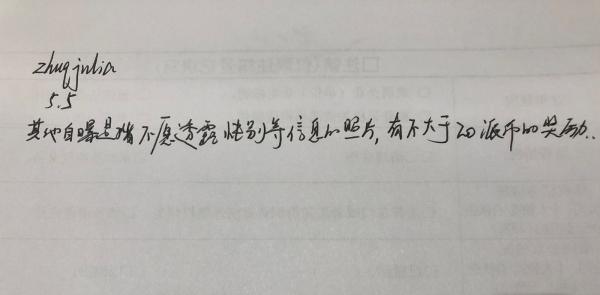 zhuqjulia
5.5
其他自曝是谁不愿透露性别等信息的照片，有不大于20派币的奖励..